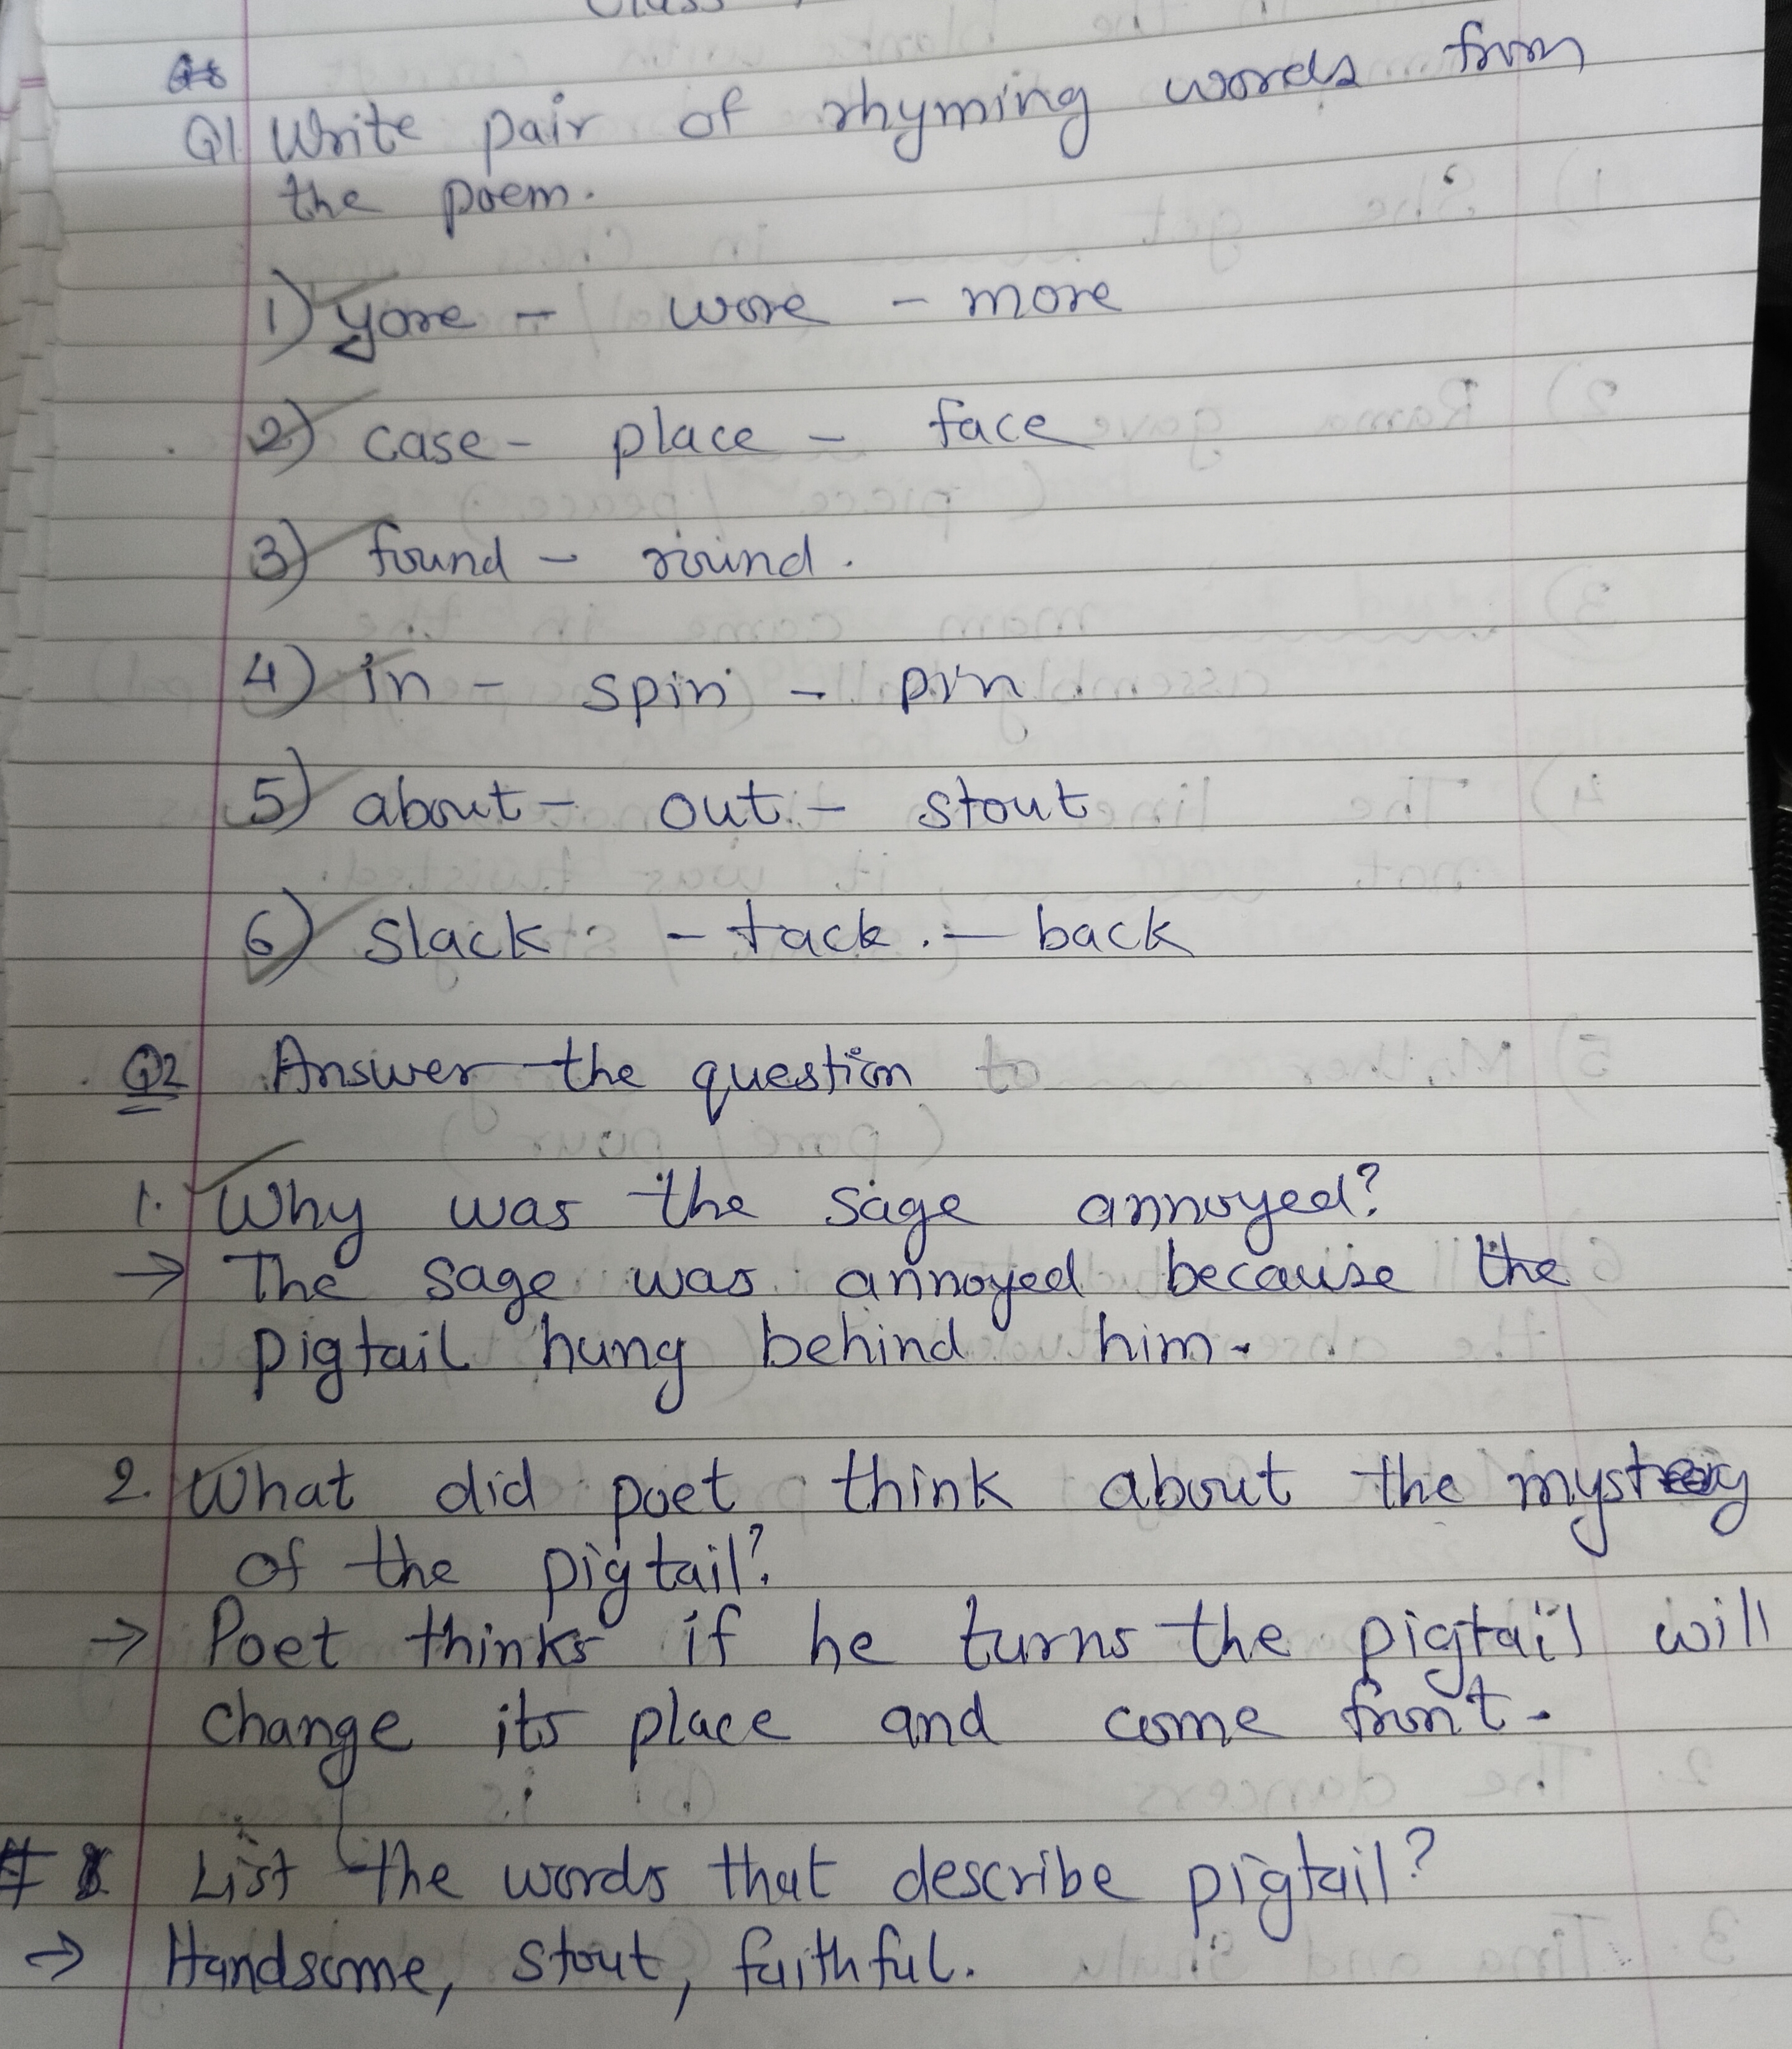 Q1 Write pair of rhyming words from
the poem.
1) yore - wore - more
2) case - place - face
3) found - round.
4) in - spin - pin
5) about - out - stout
6) slack - tack - back
Q2 Answer the question
1. Why was the sage annoyed?
→ The sage was annoyed because the
pigtail hung behind him.
2. What did poet think about the
of the pigtail?
→ Poet thinks if he turns the pigtail will
change its place and come front.
# List the words that describe pigtail?
→ Handsome, stout, faithful.